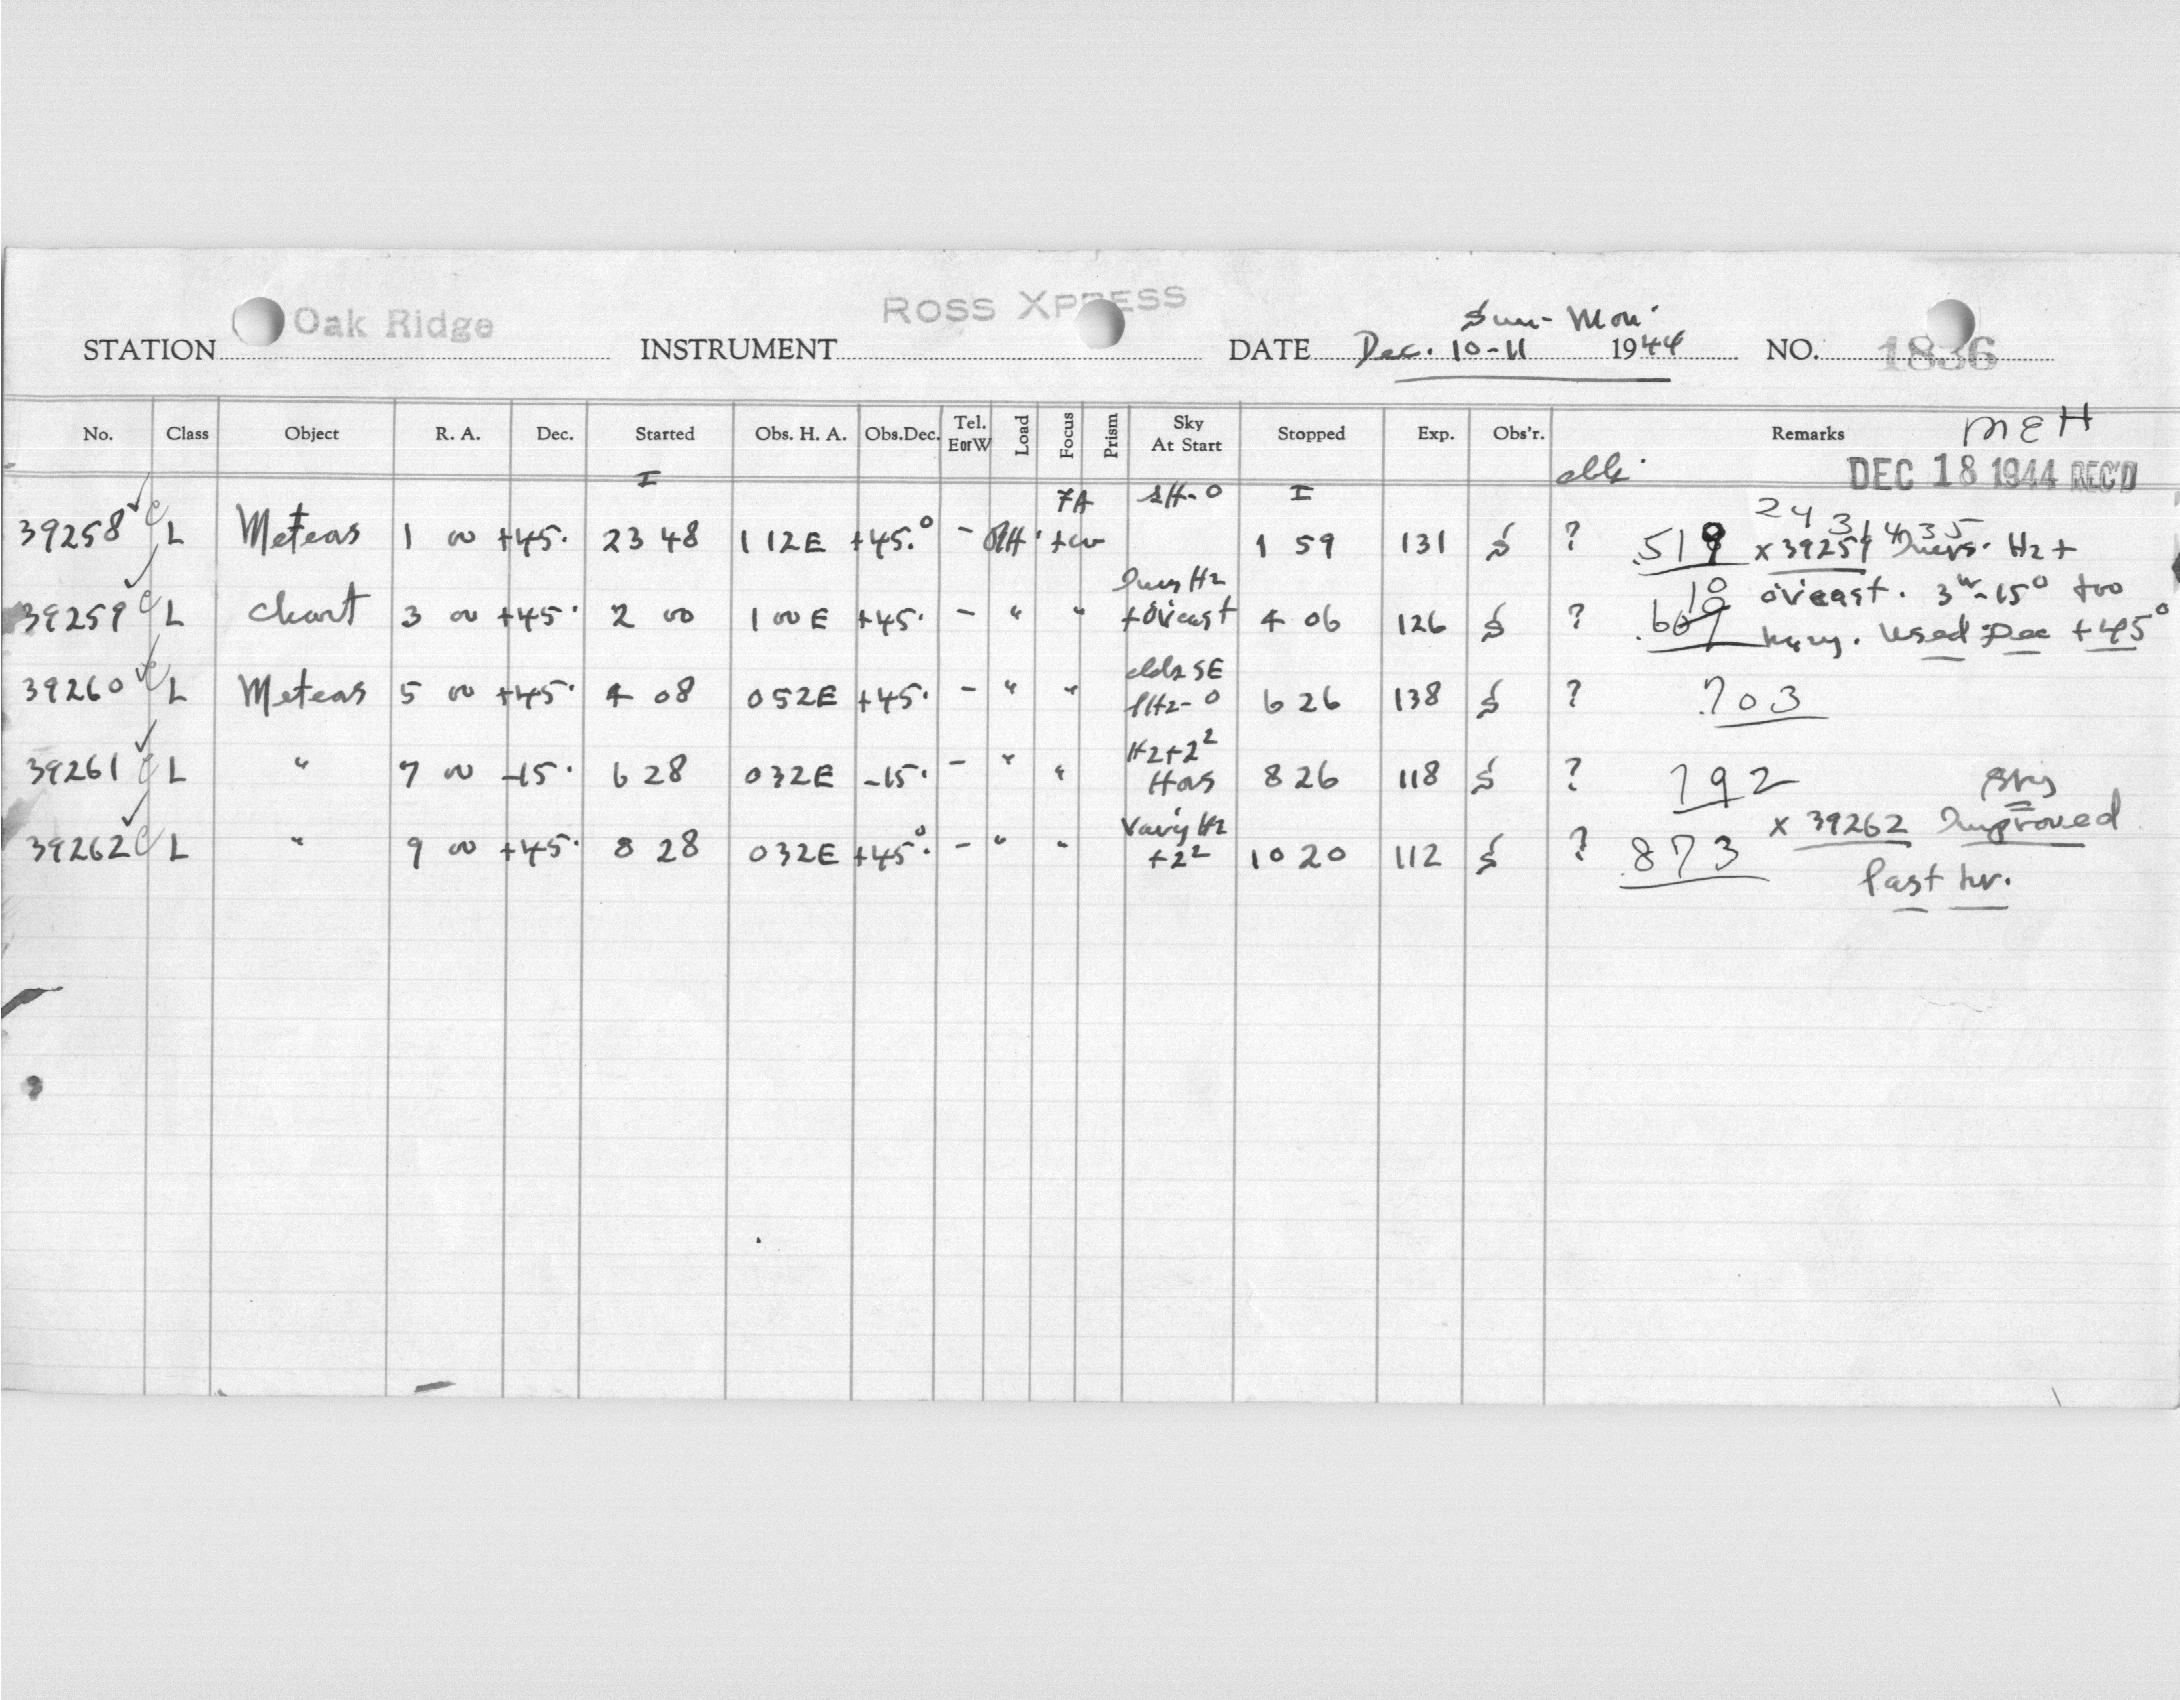 ROSS XPRESS
Sun - Mon.
STATION Oak Ridge INSTRUMENT DATE Dec. 10-11 1944 NO. 1836
No. Class Object R. A. Dec. Started Obs. H. A. Obs.Dec. Tel. E or W Load Focus Prism Sky At Start Stopped Exp. Obs'r. Remarks MEH
DEC 18 1944 REC'D
I 7A SH-0 I 24 31435
39258 L Meteors 1 00 +45. 23 48 1 12E +45.° - + 1 59 131 S ? .519 x 39259 Hz +
Hz 10 overcast. 3 -15° too
39259 L Chart 3 00 +45. 2 00 1 00 E +45. - " " + overcast 4 06 126 S ? .609 Used Dec +45°
SE
39260 L Meteors 5 00 +45. 4 08 0 52E +45. - " " - 0 6 26 138 S ? .703
Hz+2²
39261 L " 7 00 -15. 6 28 0 32E -15. - " " 8 26 118 S ? .792 Sky
Hz x 39262 Improved
39262 L " 9 00 +45. 8 28 0 32E +45.° - " " +2² 10 20 112 S ? .873
last hr.